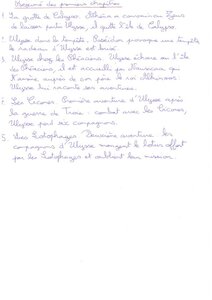 Résumé des premiers chapitres
1. La grotte de Calypso. Athéna a convaincu Zeus
de laisser partir Ulysse, il quitte l'île de Calypso.
2. Ulysse dans la tempête. Poséidon provoque une tempête,
le radeau d'Ulysse est brisé.
3. Ulysse chez les Phéaciens. Ulysse échoue sur l'île
des Phéaciens, il est accueilli par Nausicaa qui
l'amène auprès de son père le roi Alkinoos.
Ulysse lui raconte ses aventures.
4. Les Cicones Première aventure d'Ulysse après
la guerre de Troie : combat avec les Cicones,
Ulysse perd six compagnons.
5. Les Lotophages Deuxième aventure les
compagnons d'Ulysse mangent le lotus offert
par les Lotophages et oublient leur mission.